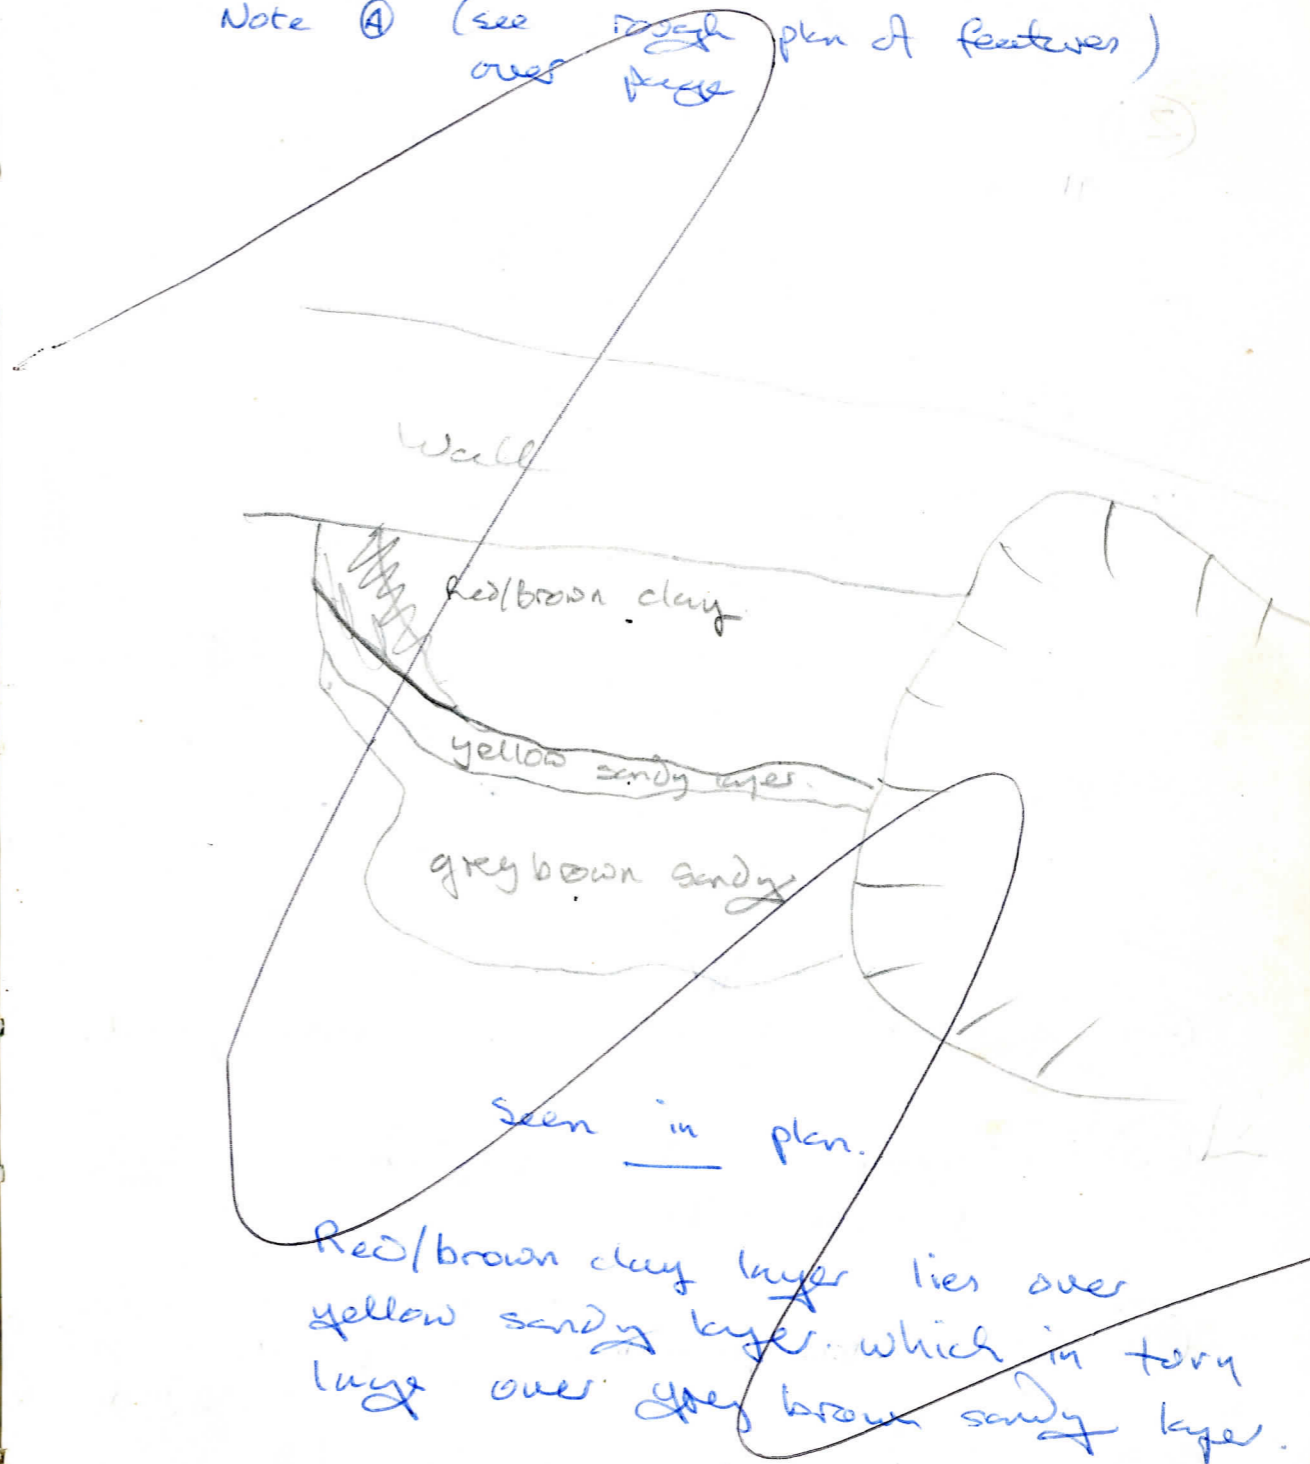 Note Ⓐ (see rough plan of features)
over page
Wall
Red/brown clay
yellow sandy layer.
grey brown sandy
Seen in plan.
Red/brown clay layer lies over
yellow sandy layer. which in torn
laye over grey brown sandy layer.